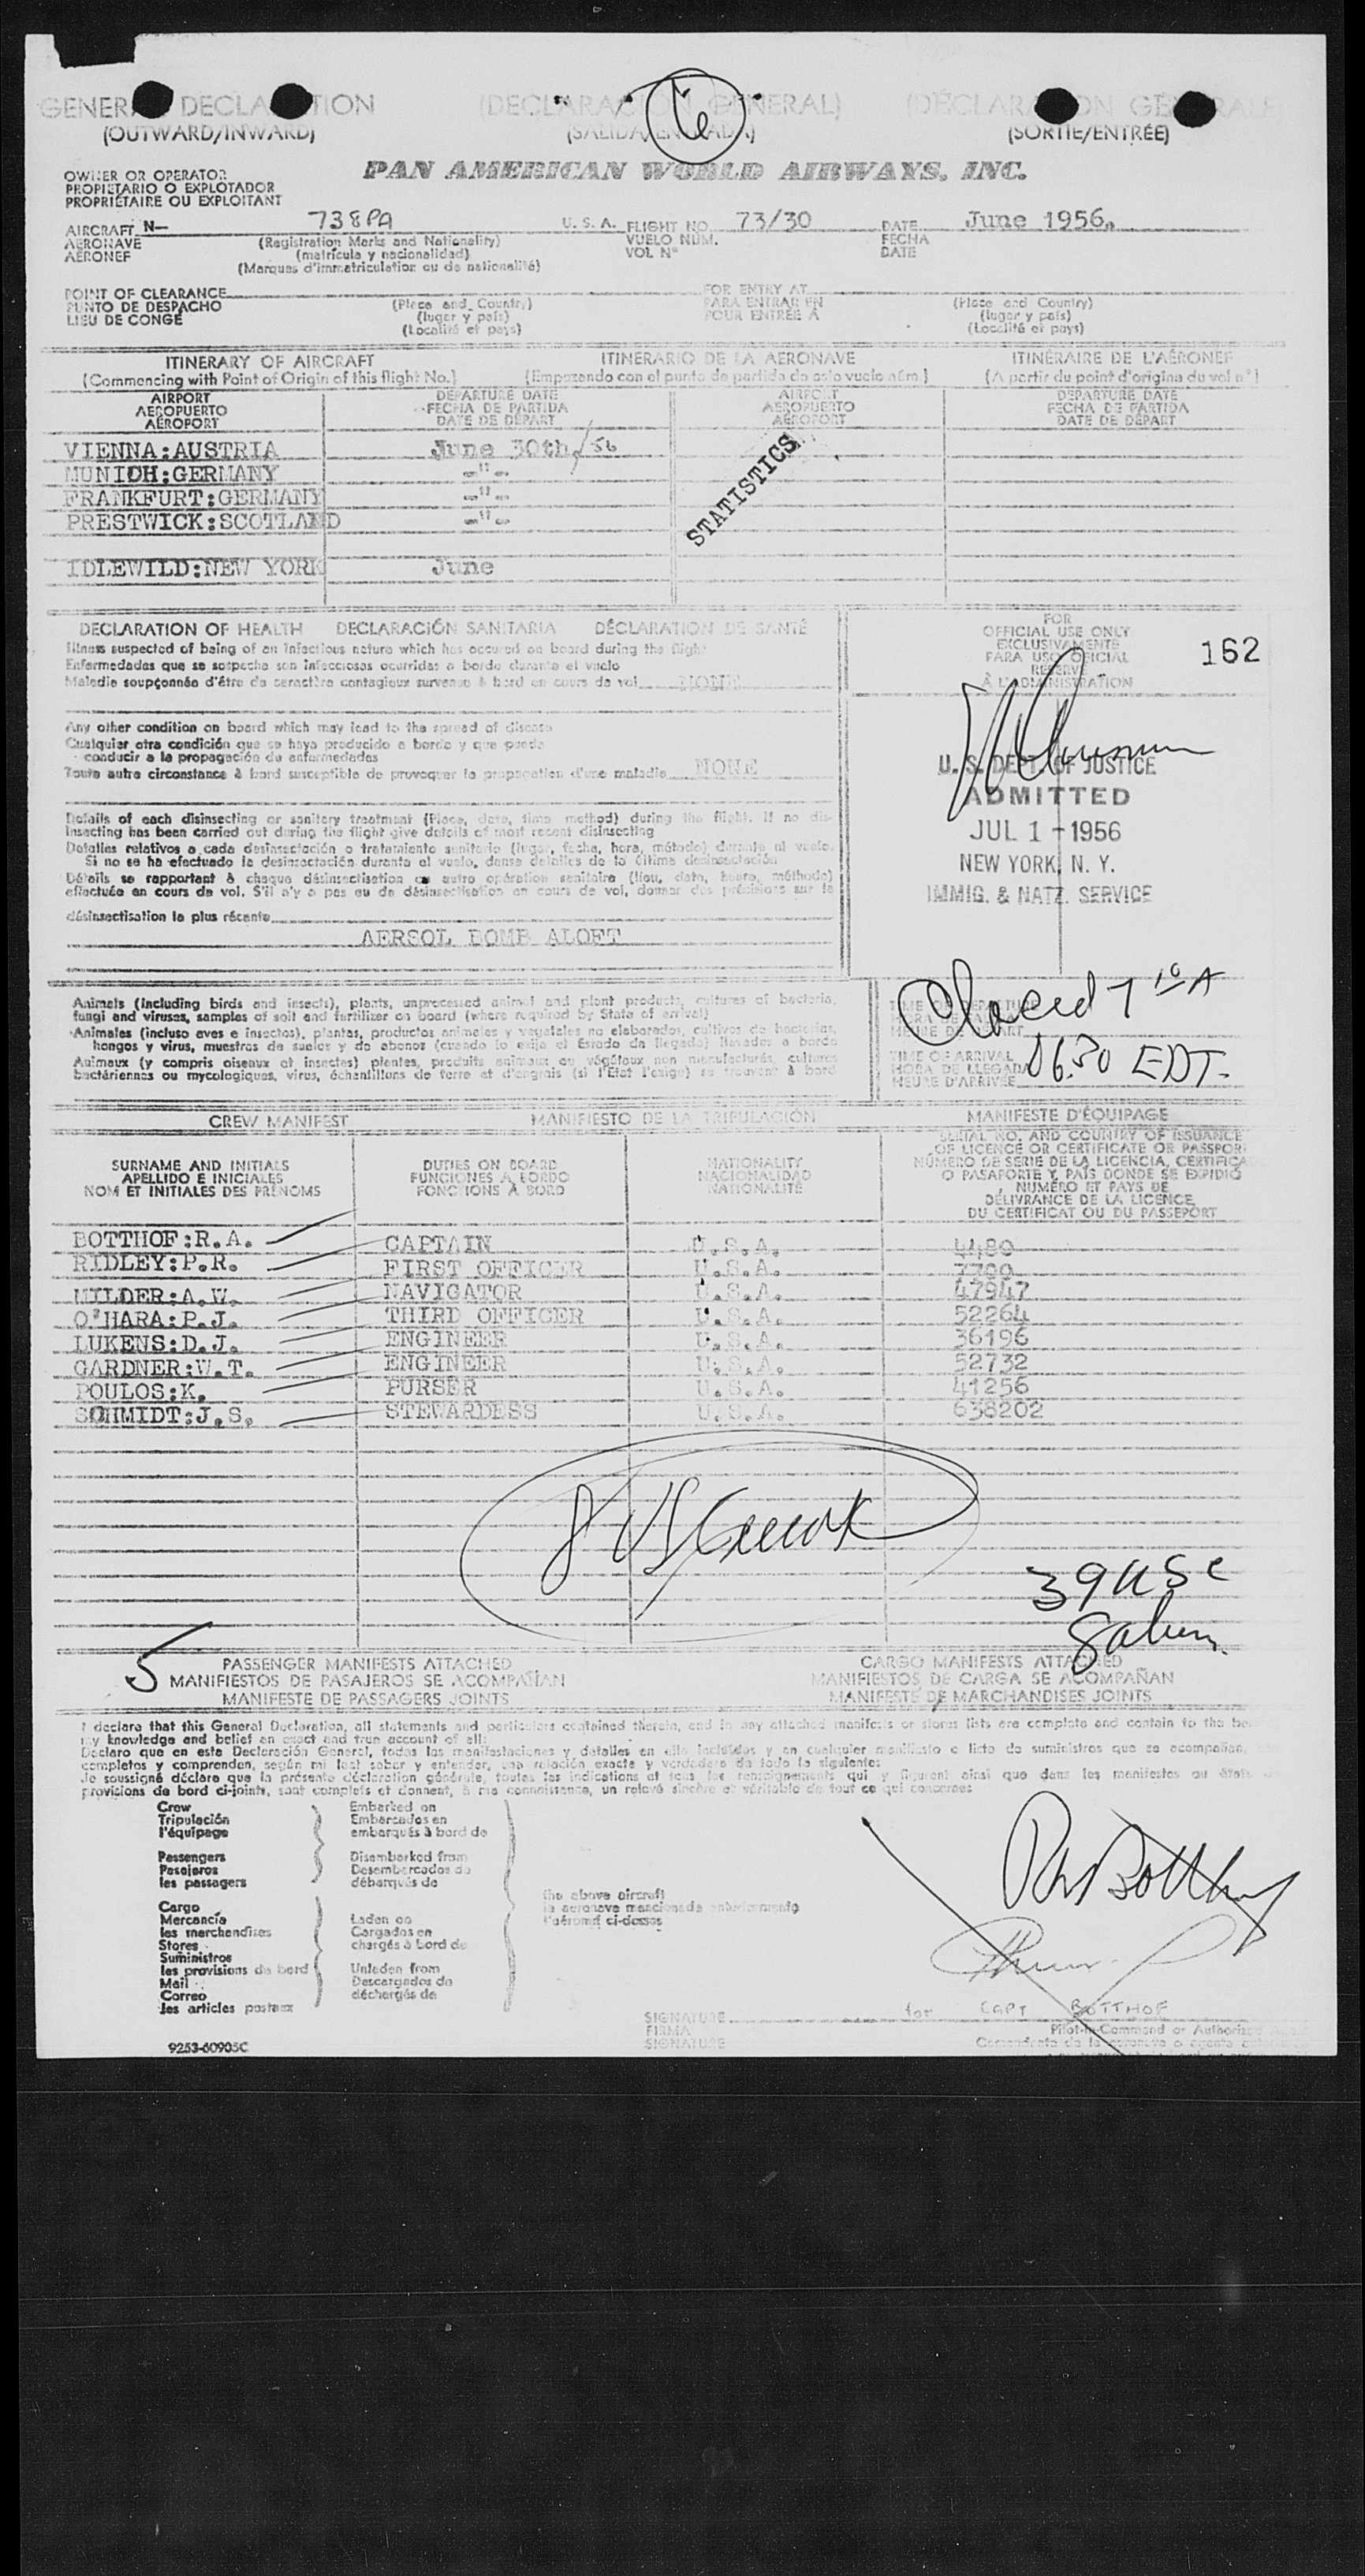 GENERAL DECLARATION (DECLARACIÓN GENERAL) (DÉCLARATION GÉNÉRALE)
(OUTWARD/INWARD) (SALIDA/ENTRADA) (SORTIE/ENTRÉE)
PAN AMERICAN WORLD AIRWAYS, INC.
OWNER OR OPERATOR
PROPIETARIO O EXPLOTADOR
PROPRIÉTAIRE OU EXPLOITANT
AIRCRAFT N— 738PA U. S. A. FLIGHT NO. 73/30 DATE June 1956.
AERONAVE (Registration Marks and Nationality) VUELO NUM. FECHA
AÉRONEF (matrícula y nacionalidad) VOL N° DATE
(Marques d'immatriculation ou de nationalité)
POINT OF CLEARANCE FOR ENTRY AT
PUNTO DE DESPACHO (Place and Country) PARA ENTRAR EN (Place and Country)
LIEU DE CONGÉ (lugar y país) POUR ENTRÉE A (lugar y país)
(Localité et pays) (Localité et pays)
ITINERARY OF AIRCRAFT ITINERARIO DE LA AERONAVE ITINÉRAIRE DE L'AÉRONEF
(Commencing with Point of Origin of this flight No.) (Empezando con el punto de partida de este vuelo núm.) (A partir du point d'origine du vol n°)
AIRPORT DEPARTURE DATE AIRPORT DEPARTURE DATE
AEROPUERTO FECHA DE PARTIDA AEROPUERTO FECHA DE PARTIDA
AÉROPORT DATE DE DÉPART AÉROPORT DATE DE DÉPART
VIENNA:AUSTRIA June 30th/56
MUNICH:GERMANY -"-
FRANKFURT:GERMANY -"-
PRESTWICK:SCOTLAND -"-
STATISTICS
IDLEWILD:NEW YORK June
DECLARATION OF HEALTH DECLARACIÓN SANITARIA DÉCLARATION DE SANTÉ
Illness suspected of being of an infectious nature which has occured on board during the flight
Enfermedades que se sospecha son infecciosas ocurridas a bordo durante el vuelo
Maladie soupçonnée d'être de caractère contagieux survenue à bord en cours de vol NONE
Any other condition on board which may lead to the spread of disease
Cualquier otra condición que se haya producido a bordo y que pueda
conducir a la propagación de enfermedades
Toute autre circonstance à bord susceptible de provoquer la propagation d'une maladie NONE
Details of each disinsecting or sanitary treatment (Place, date, time method) during the flight. If no dis-
insecting has been carried out during the flight give details of most recent disinsecting
Detalles relativos a cada desinsectación o tratamiento sanitario (lugar, fecha, hora, método) durante el vuelo.
Si no se ha efectuado la desinsectación durante el vuelo, dense detalles de la última desinsectación
Détails se rapportant à chaque désinsectisation ou autre opération sanitaire (lieu, date, heure, méthode)
effectuée en cours de vol. S'il n'y a pas eu de désinsectisation en cours de vol, donner des précisions sur la
désinsectisation la plus récente
AERSOL BOMB ALOFT
FOR
OFFICIAL USE ONLY
EXCLUSIVAMENTE
PARA USO OFICIAL
RESERVÉ
À L'ADMINISTRATION
162
U. S. DEPT. OF JUSTICE
ADMITTED
JUL 1 - 1956
NEW YORK, N. Y.
IMMIG. & NATZ. SERVICE
Animals (including birds and insects), plants, unprocessed animal and plant products, cultures of bacteria,
fungi and viruses, samples of soil and fertilizer on board (where required by State of arrival)
Animales (incluso aves e insectos), plantas, productos animales y vegetales no elaborados, cultivos de bacterias,
hongos y virus, muestras de suelos y de abonos (cuando lo exija el Estado de llegada) llevados a bordo
Animaux (y compris oiseaux et insectes) plantes, produits animaux ou végétaux non manufacturés, cultures
bactériennes ou mycologiques, virus, échantillons de terre et d'engrais (si l'État l'exige) se trouvant à bord
Closed 7 10 A
TIME OF DEPARTURE
TIME OF ARRIVAL
HORA DE LLEGADA
HEURE D'ARRIVÉE
0630 EDT.
CREW MANIFEST MANIFIESTO DE LA TRIPULACIÓN MANIFESTE D'ÉQUIPAGE
SURNAME AND INITIALS DUTIES ON BOARD NATIONALITY SERIAL NO. AND COUNTRY OF ISSUANCE
APELLIDO E INICIALES FUNCIONES A BORDO NACIONALIDAD OF LICENCE OR CERTIFICATE OR PASSPOR
NOM ET INITIALES DES PRÉNOMS FONCTIONS À BORD NATIONALITÉ NÚMERO DE SERIE DE LA LICENCIA, CERTIFICA
O PASAPORTE Y PAÍS DONDE SE EXPIDIÓ
NUMÉRO ET PAYS DE
DÉLIVRANCE DE LA LICENCE
DU CERTIFICAT OU DU PASSEPORT
BOTTHOF:R.A. CAPTAIN U.S.A. 4480
RIDLEY:P.R. FIRST OFFICER U.S.A.
MILDER:A.W. NAVIGATOR U.S.A. 47947
O'HARA:P.J. THIRD OFFICER U.S.A. 52264
LUKENS:D.J. ENGINEER U.S.A. 36196
GARDNER:W.T. ENGINEER U.S.A. 52732
POULOS:K. PURSER U.S.A. 41256
SCHMIDT:J.S. STEWARDESS U.S.A. 638202
39 USC
5
PASSENGER MANIFESTS ATTACHED CARGO MANIFESTS ATTACHED
MANIFIESTOS DE PASAJEROS SE ACOMPAÑAN MANIFIESTOS DE CARGA SE ACOMPAÑAN
MANIFESTE DE PASSAGERS JOINTS MANIFESTE DE MARCHANDISES JOINTS
I declare that this General Declaration, all statements and particulars contained therein, and in any attached manifests or stores lists are complete and contain to the be
my knowledge and belief an exact and true account of all:
Declaro que en esta Declaración General, todas las manifestaciones y detalles en ella incluidos y en cualquier manifiesto o lista de suministros que se acompañan,
completos y comprenden, según mi leal saber y entender, una relación exacta y verdadera de todo lo siguiente:
Je soussigné déclare que la présente déclaration générale, toutes les indications et tous les renseignements qui y figurent ainsi que dans les manifestes ou états
provisions de bord ci-joints, sont complets et donnent, à ma connaissance, un relevé sincère et véritable de tout ce qui concerne:
Crew Embarked on
Tripulación Embarcados en
l'équipage embarqués à bord de
Passengers Disembarked from
Pasajeros Desembarcados de
les passagers débarqués de
the above aircraft
Cargo la aeronave mencionada anteriormente
Mercancía Laden on l'aéronef ci-dessus
les marchandises Cargados en
Stores chargés à bord de
Suministros
les provisions de bord Unladen from
Mail Descargados de
Correo déchargés de
les articles postaux
SIGNATURE for CAPT BOTTHOF
FIRMA Pilot-in-Command or Authorized
SIGNATURE Comandante de la aeronave o agente
9253-60905C